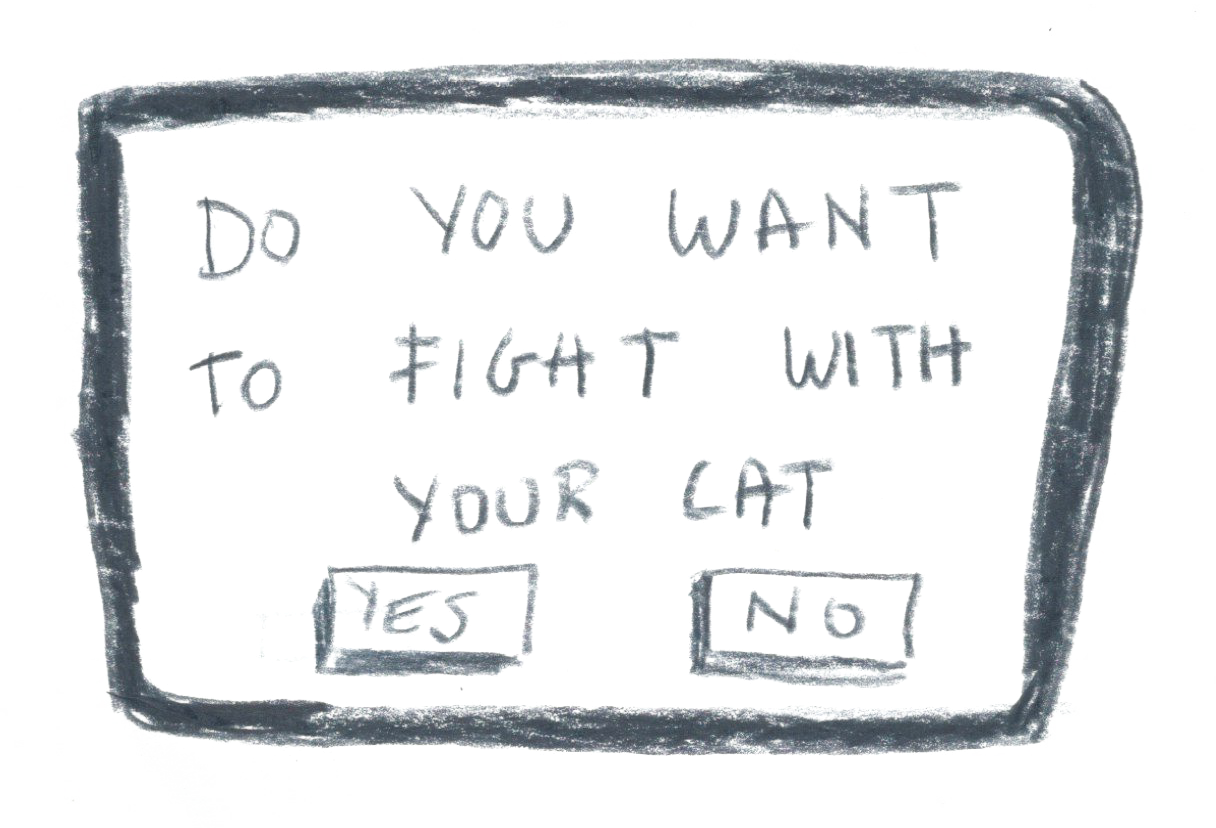 DO YOU WANT
TO FIGHT WITH
YOUR CAT
YES NO